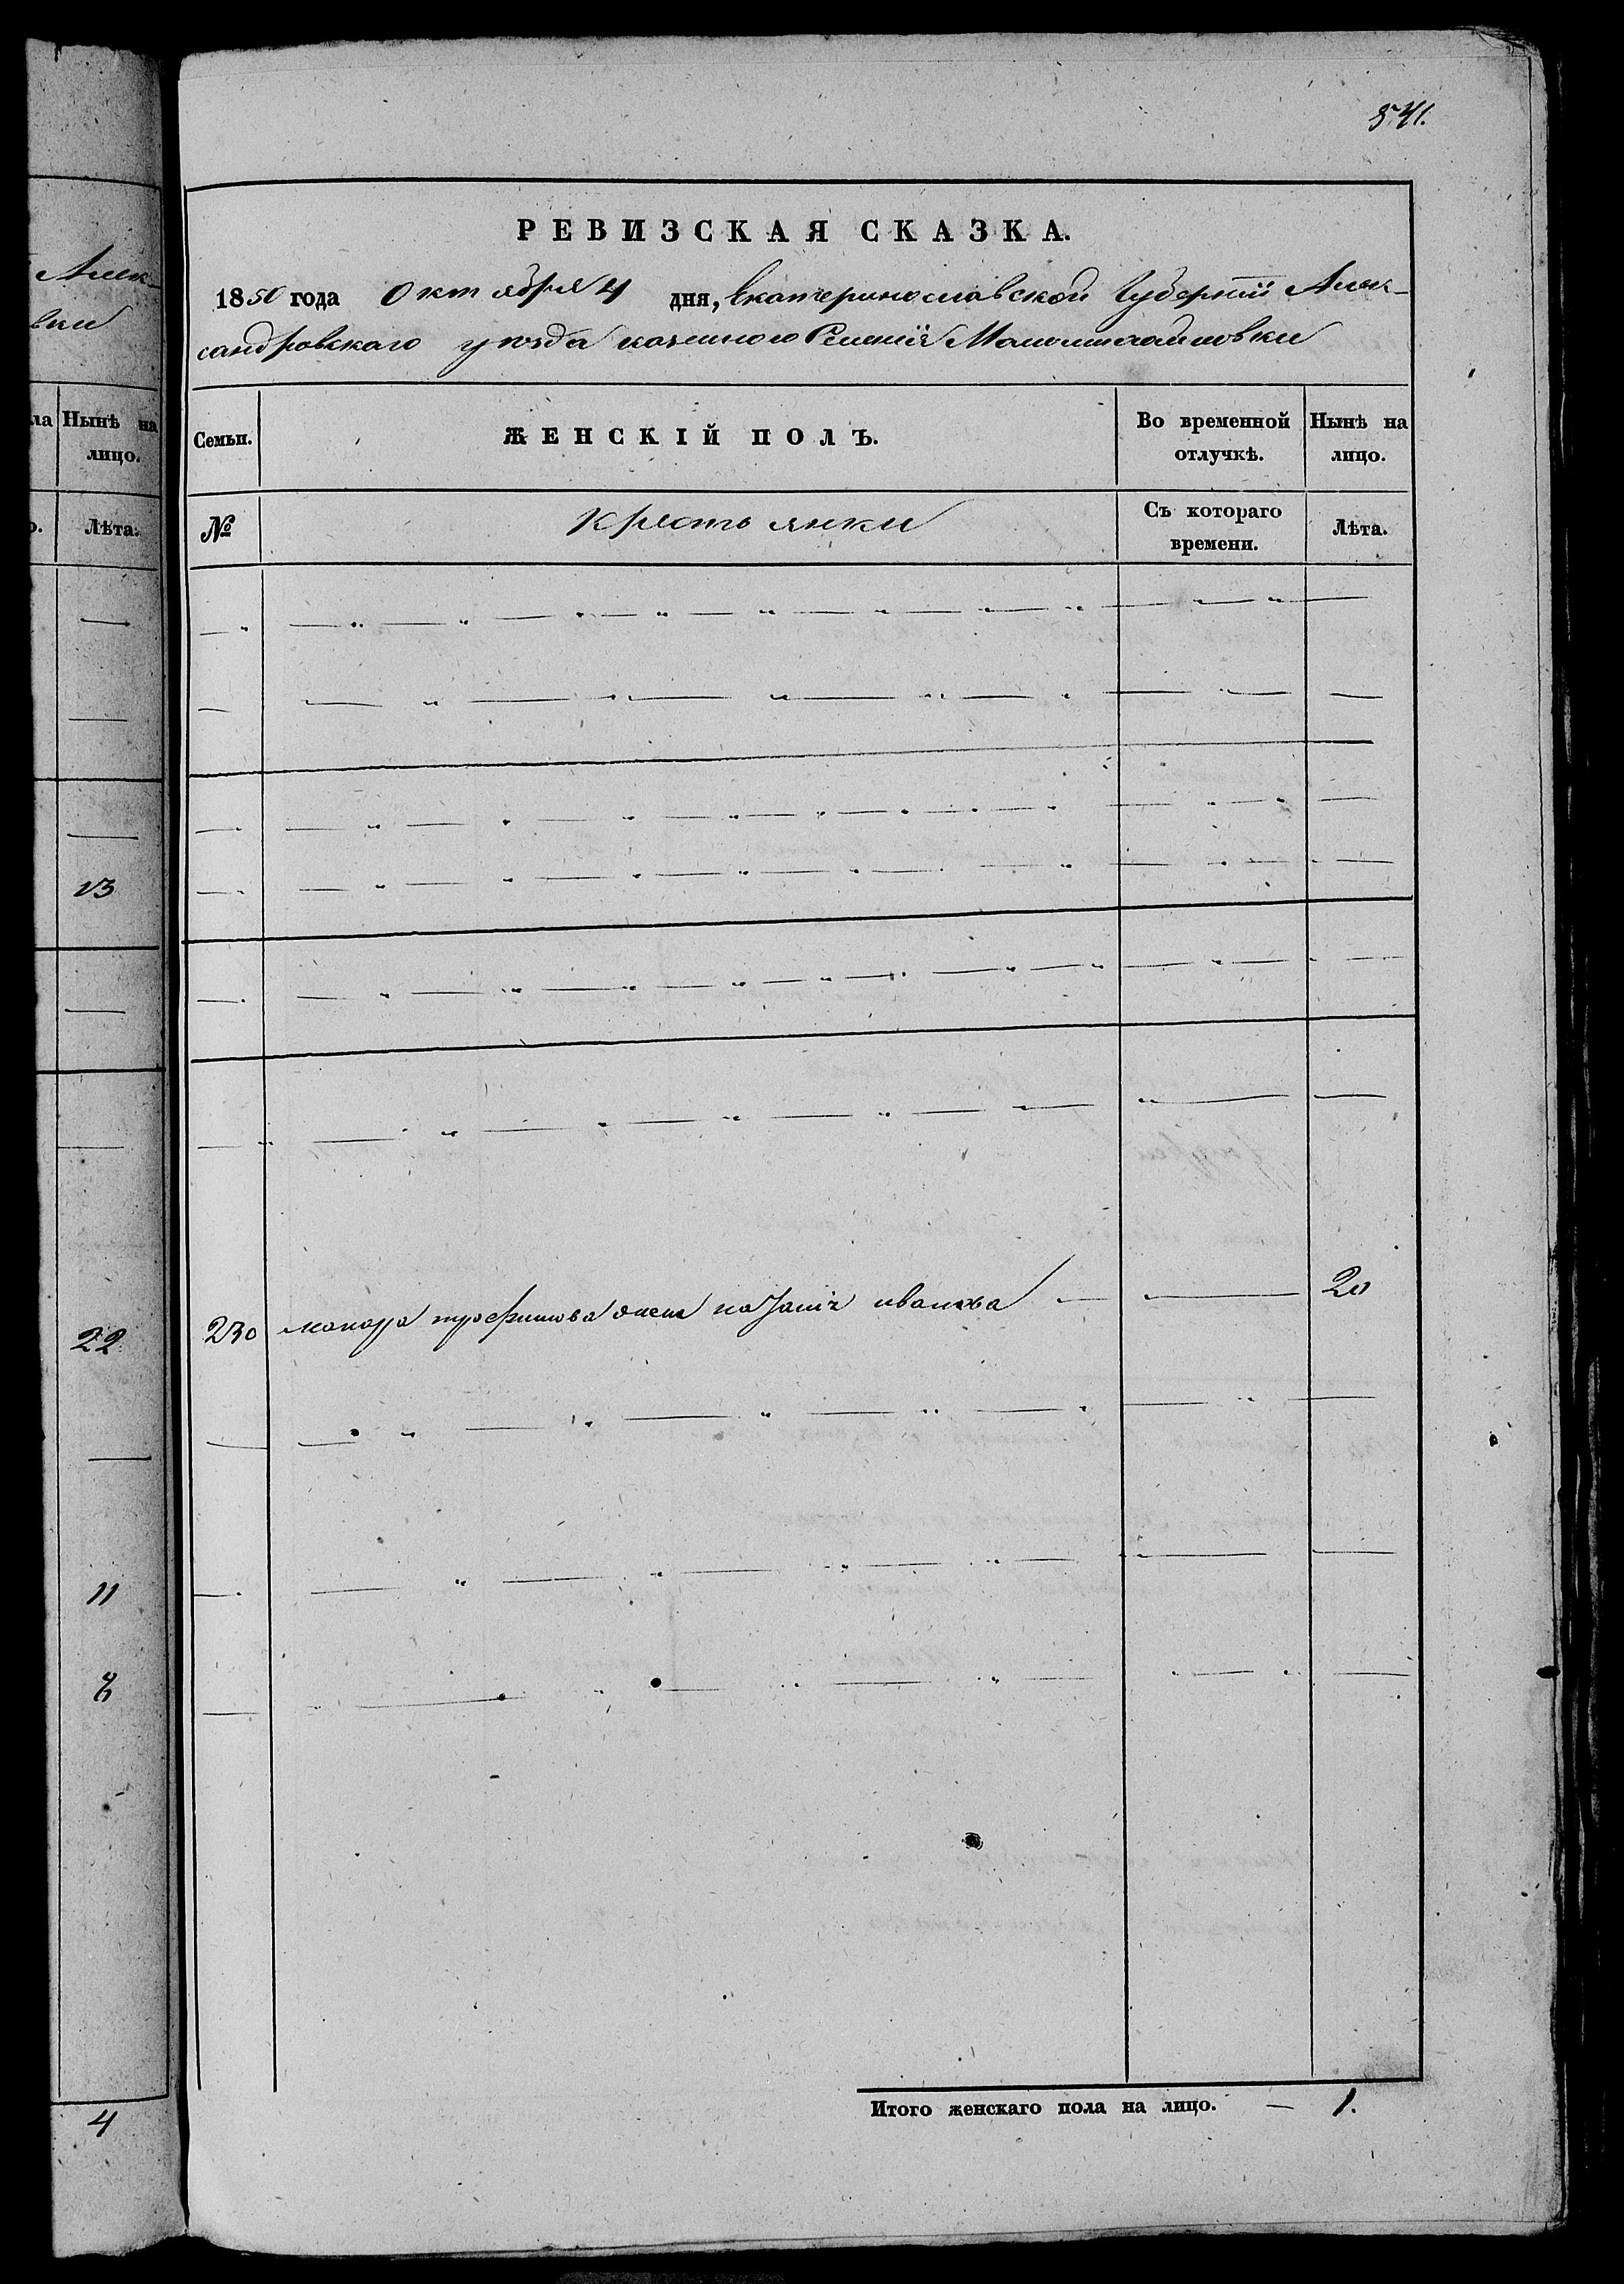 Алек-
вки
ла
Нынѣ на
лицо.
Лѣта.
13
22
11
8
4
541.
РЕВИЗСКАЯ СКАЗКА.
1850 года Октября 4 дня, Екатеринославской Губернии Алек-
сандровскаго уезда казенного Селения Маломихайловки
Семьи.
ЖЕНСКІЙ ПОЛЪ.
Во временной
отлучкѣ.
Нынѣ на
лицо.
№
Крестьянки
Съ котораго
времени.
Лѣта.
230 макара трофимова жена наталія иванова 20
Итого женскаго пола на лицо. — 1.